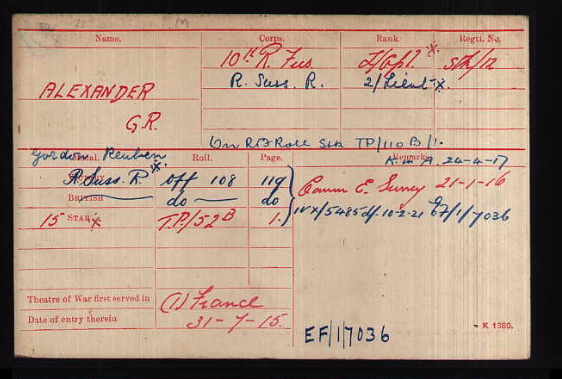 Name. Corps. Rank. Regtl. No.
10th R. Fus. L/Cpl. x. Stk/12
ALEXANDER R. Suss. R. 2/Lieut x.
G.R.
On R & F Roll Star TP/110 B/1.
Gordon Reuben
Medal. Roll. Page. Remarks
K. in A. 24-4-17
R. Suss. R. Off 108 119 Comm E. Surrey 21-1-16
British do do IVX/5485 df. 10-2-21 EF/1/7036
15 STAR x T.P./52B 1.
Theatre of War first served in (1) France
Date of entry therein 31-7-15.
EF/1/7036
K 1380.